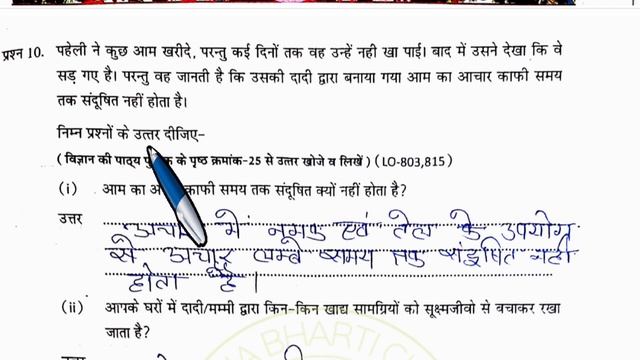 प्रश्न 10. पहेली ने कुछ आम खरीदे, परन्तु कई दिनों तक वह उन्हें नही खा पाई। बाद में उसने देखा कि वे
सड़ गए है। परन्तु वह जानती है कि उसकी दादी द्वारा बनाया गया आम का आचार काफी समय
तक संदूषित नहीं होता है।
निम्न प्रश्नों के उत्तर दीजिए–
(विज्ञान की पाठ्य के पृष्ठ क्रमांक-25 से उत्तर खोजे व लिखें) (LO-803,815)
(i) आम का काफी समय तक संदूषित क्यों नहीं होता है?
उत्तर अचार में नमक एवं तेल के उपयोग
से अचार लम्बे समय तक संदूषित नही
होता है।
(ii) आपके घरों में दादी/मम्मी द्वारा किन-किन खाद्य सामग्रियों को सूक्ष्मजीवो से बचाकर रखा
जाता है?